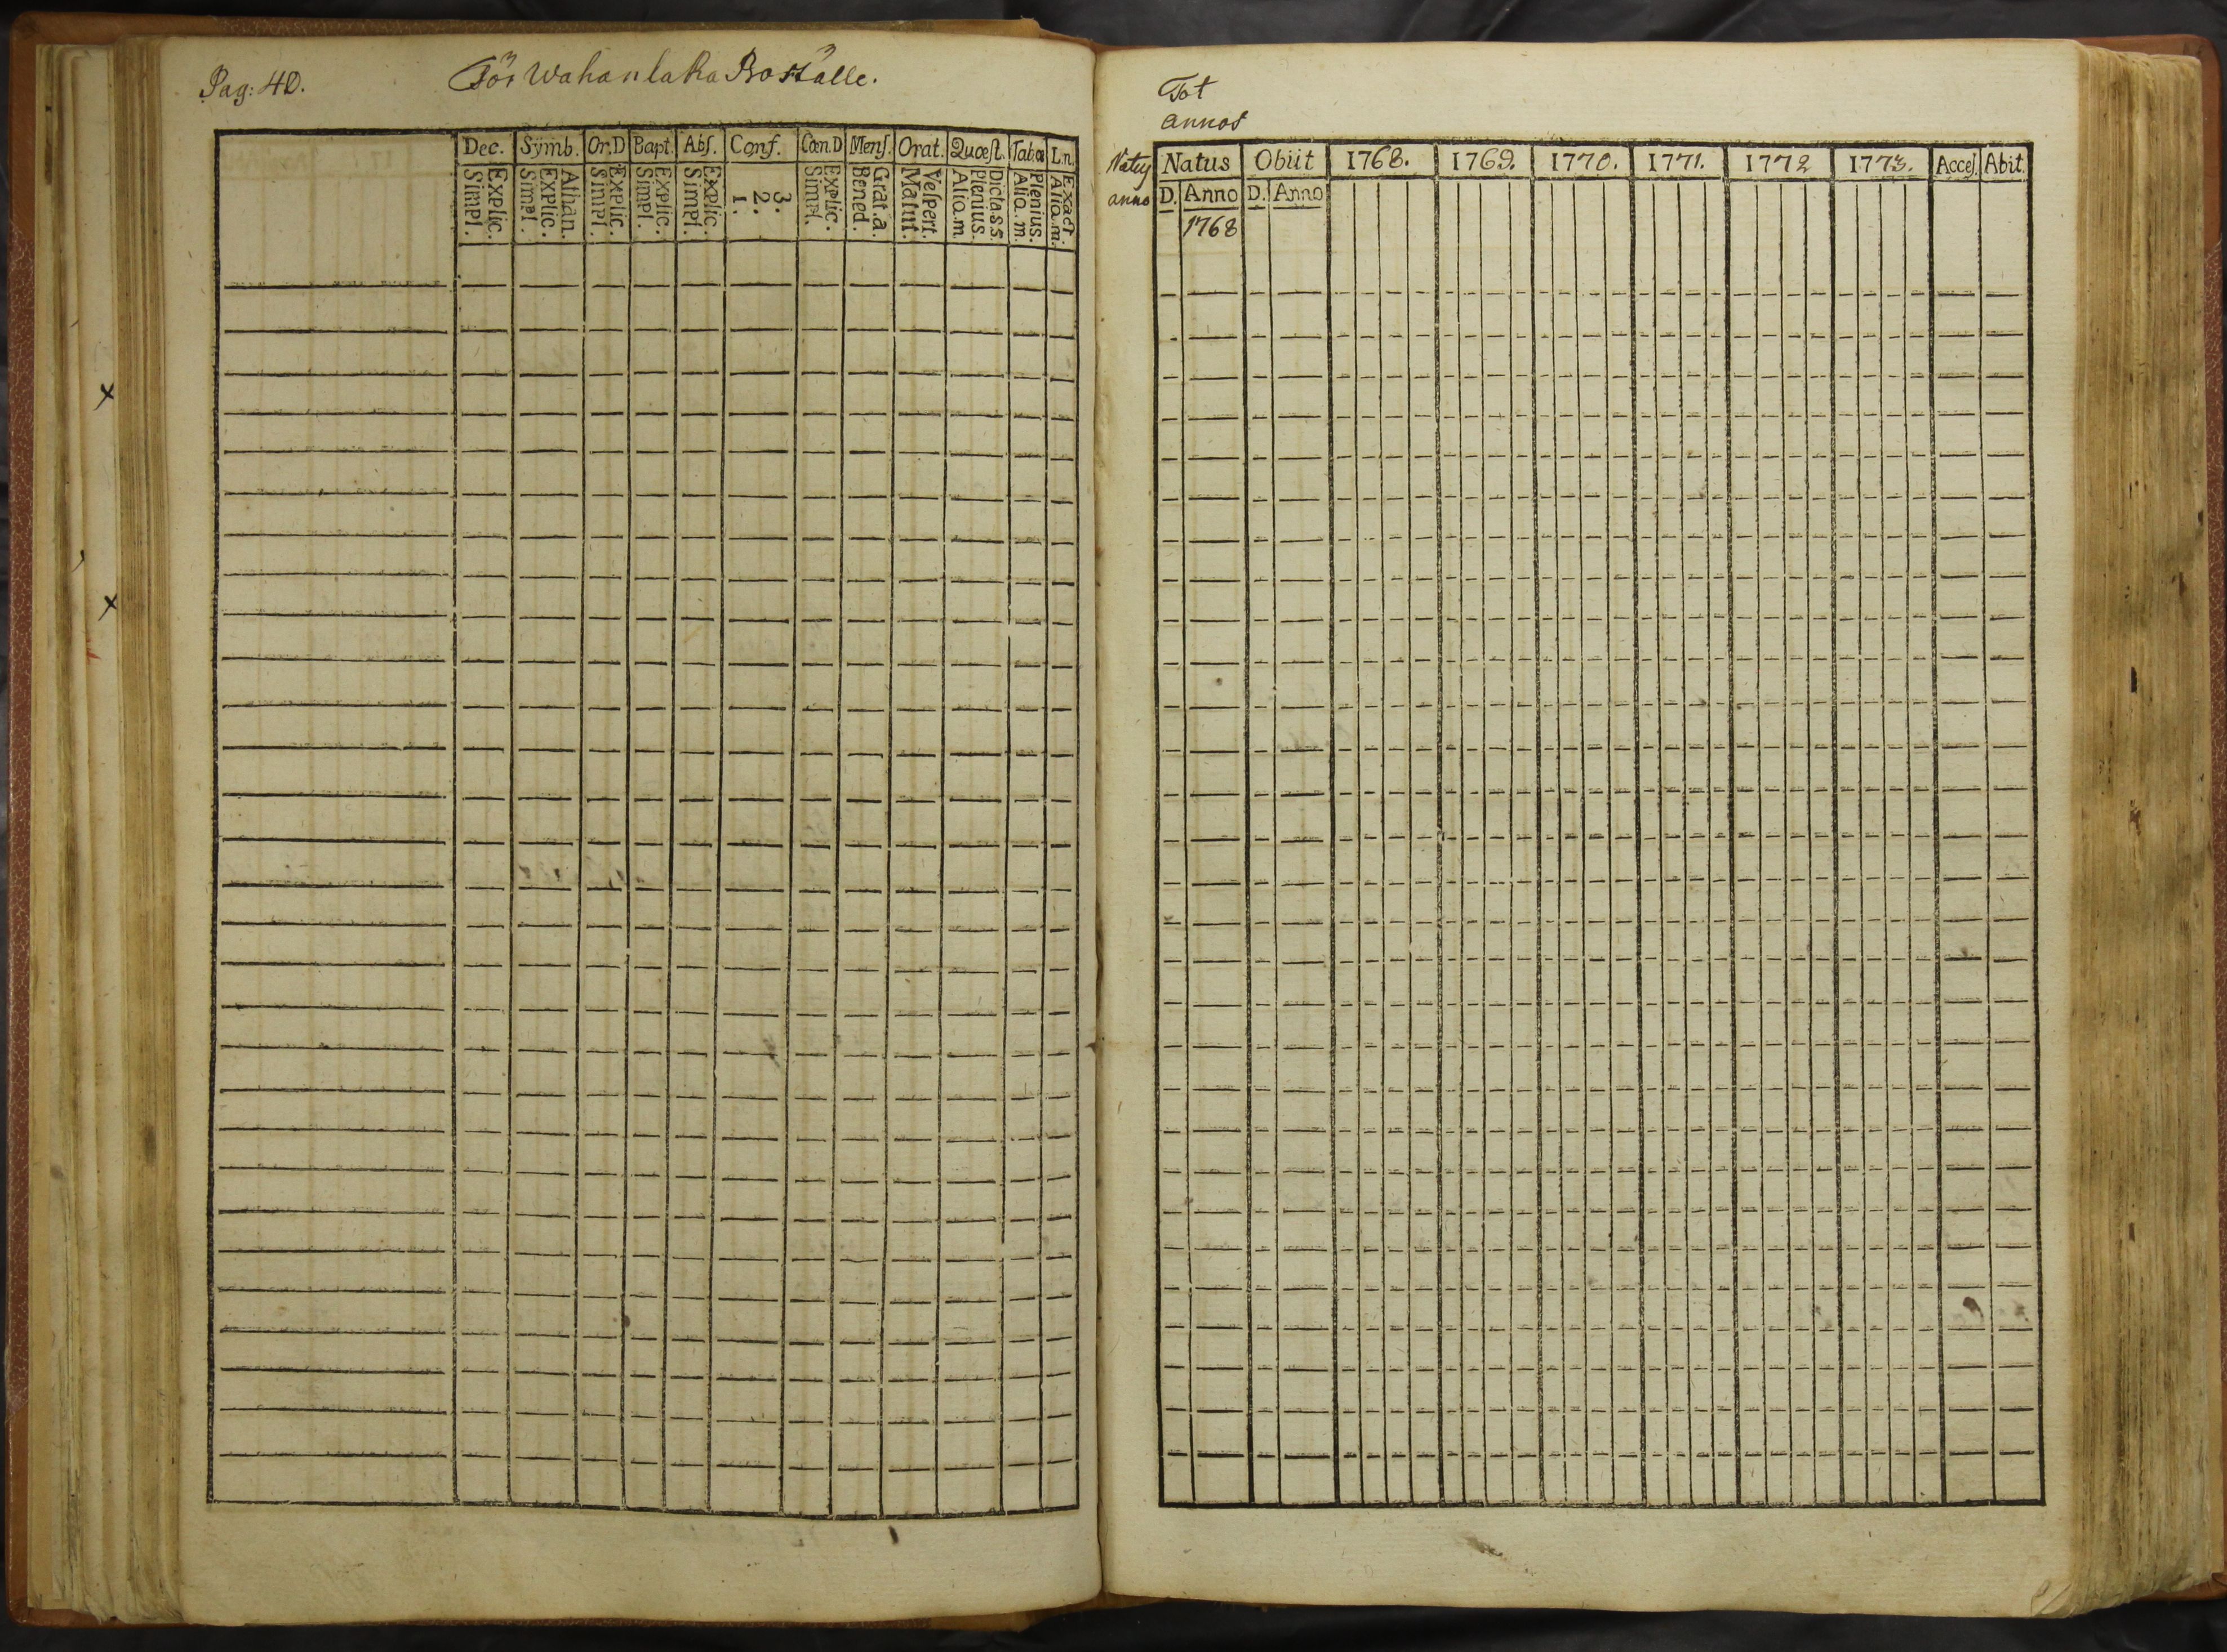 Pag: 40. För Wahanlaka Boställe.
Dec. Symb. Or.D Bapt. Abſ. Conf. Cœn.D Menſ. Orat. Quæſt. Tab.œ L.n.
Explic. Simpl. Athan. Explic. Simpl. Explic. Simpl. Explic. Simpl. Explic. Simpl. 3. 2. 1. Explic. Simpl. Grat.a. Bened. Veſpert. Matut. Dicta.s.s. Plenius. Aliq.m Plenius. Aliq.m. Exact. Aliq.m.
Tot
annos
Natus
anno
Natus Obiit 1768. 1769. 1770. 1771. 1772 1773. Acceſ. Abit.
D. Anno D. Anno
1768